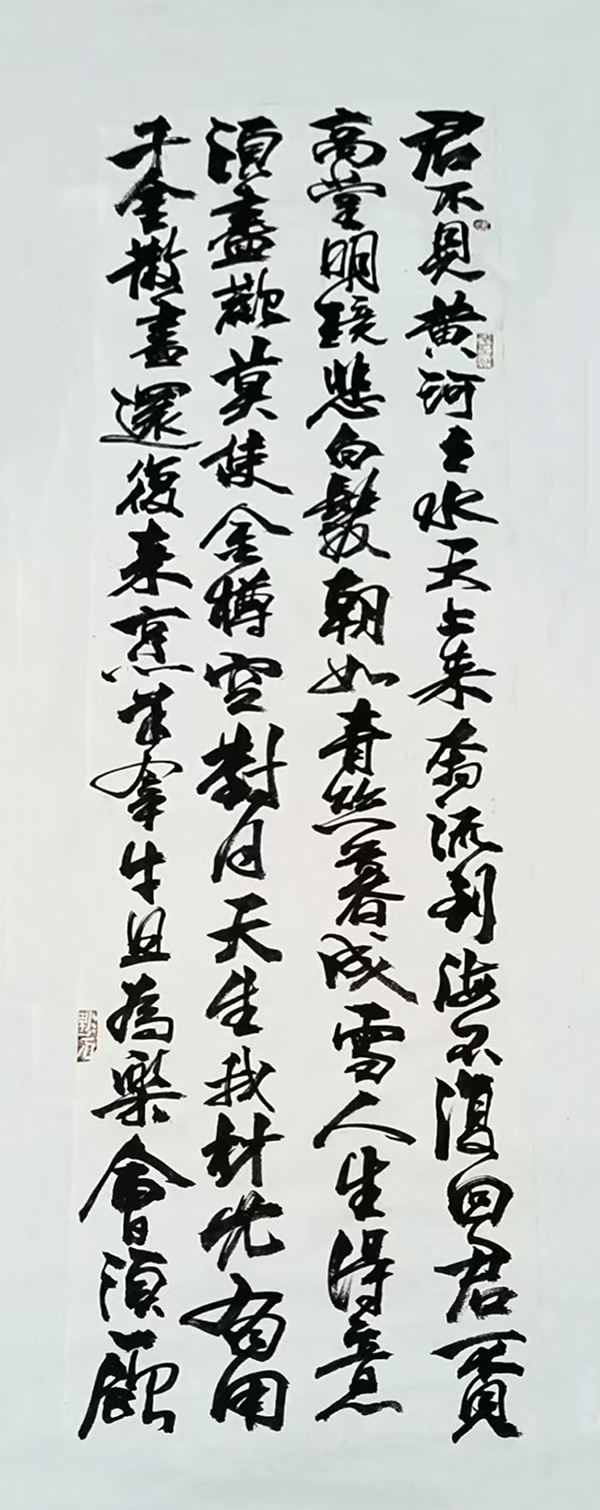 君不見黄河之水天上来奔流到海不復回君不見
高堂明鏡悲白髮朝如青丝暮成雪人生得意
須盡歡莫使金樽空對月天生我材必有用
千金散盡還復来烹羊宰牛且為樂會須一飲